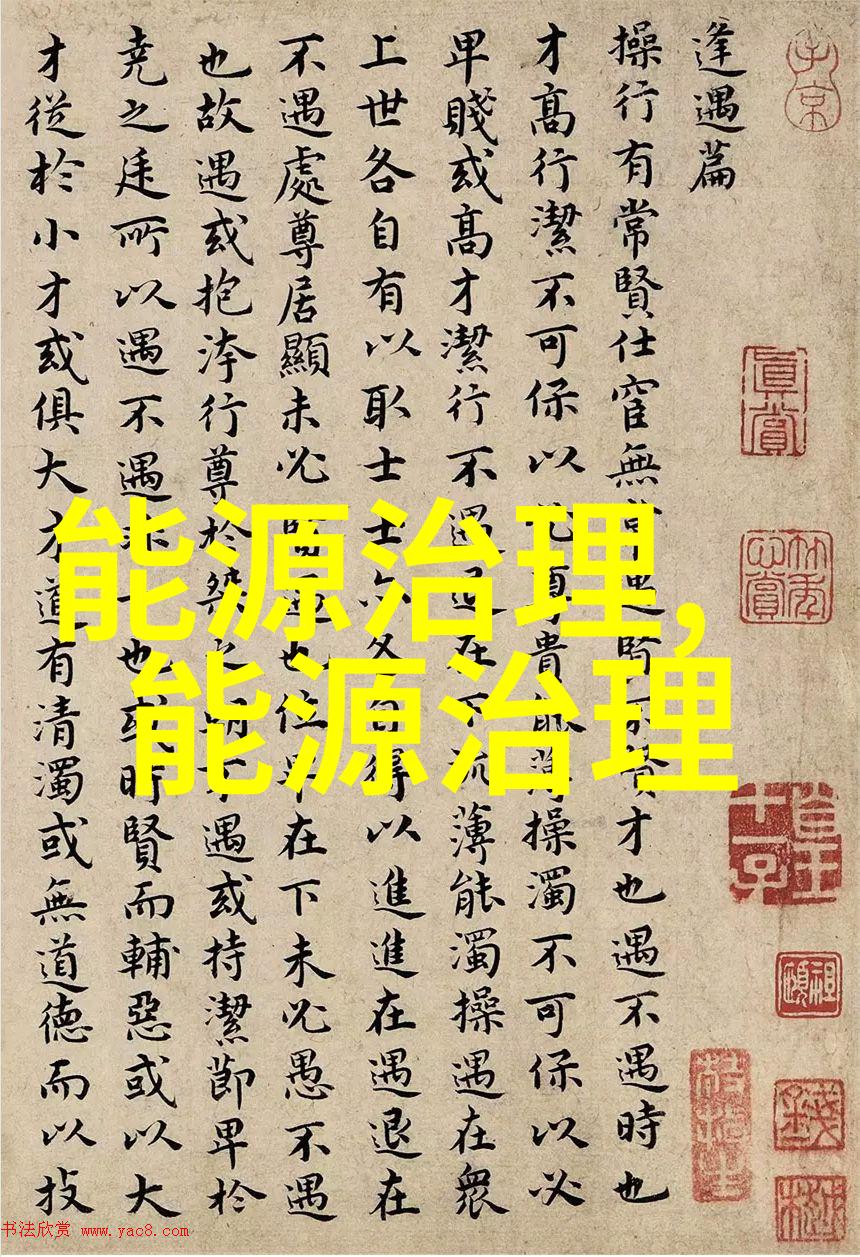 逢遇篇
操行有常賢仕宦無
才也遇不遇時也
才高行潔不可保以
尊貴
操濁不可保以必
卑賤或高才潔行不遇
薄能濁操遇在衆
上世各自有以取士士亦各自得以進進在遇退在
不遇處尊居顯未必
也位卑在下未必愚不遇
也故遇或抱洿行尊於桀之
遇或持潔節卑於
堯之廷所以遇不遇非一也或時賢而輔惡或以大
才從於小才或俱大才道有清濁或無道德而以技
能源治理,
能源治理
真賞
书法欣赏 www.yac8.com